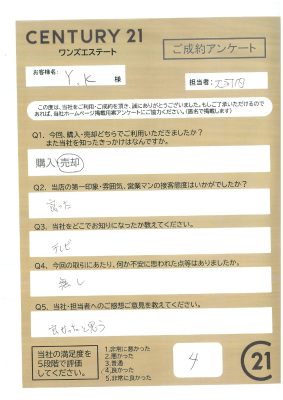 CENTURY 21
ワンズエステート
ご成約アンケート
お客様名:
Y.K
様
担当者:
この度は、当社をご利用・ご成約を頂き、誠にありがとうございました。もしご了承いただけるのであれば、当社ホームページ掲載用案へアンケートにご協力ください。(匿名で掲載します)
Q1. 今回、購入・売却どちらでご利用いただきましたか?
また当社を知ったきっかけはなんですか。
購入・売却
Q2. 当店の第一印象・雰囲気、営業マンの接客態度はいかがでしたか?
良かった
Q3. 当社をどこでお知りになったか教えてください。
テレビ
Q4. 今回の取引にあたり、何か不安に思われた点等はありましたか。
無し
Q5. 当社・担当者へのご感想ご意見を教えてください。
良かったと思う
当社の満足度を
5段階で評価
してください。
1.非常に悪かった
2.悪かった
3.普通
4.良かった
5.非常に良かった
4
C21